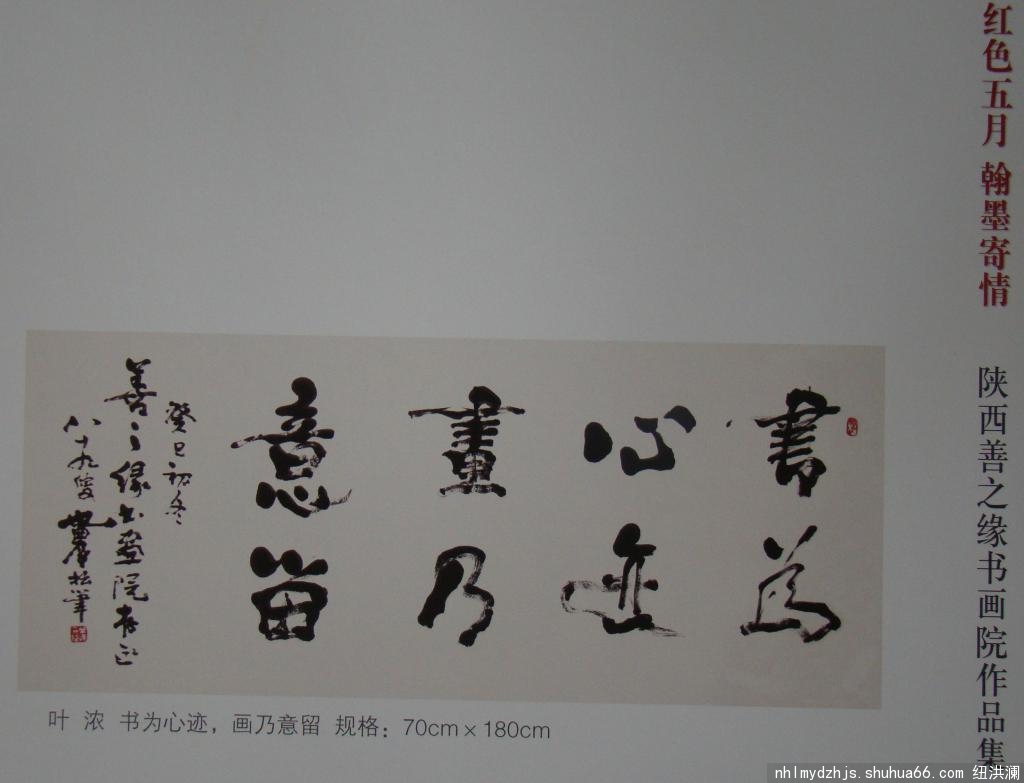 红色五月 翰墨寄情
陕西善之缘书画院作品集
書為
心迹
畫乃
意留
癸巳初冬
善之缘书画院存正
八十九叟
叶 浓 书为心迹，画乃意留 规格：70cm×180cm
nhlmydzhjs.shuhua66.com 纽洪澜